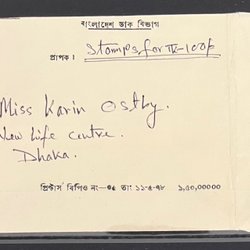 বাংলাদেশ ডাক বিভাগ
প্রাপক : Stamps for Tk-100/-
Miss Karin Ostby.
New Life Centre.
Dhaka.
প্রিন্টার্স বিপিও নং—০৫ তাং ১১-৫-৭৮ ১,৫০,০০০০০